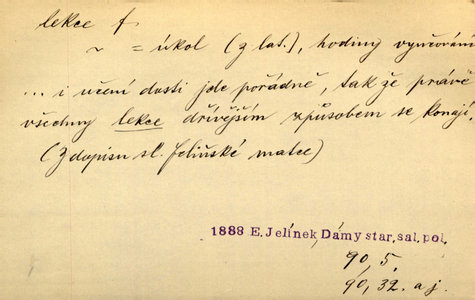 lekce f.
~ = úkol (z lat.), hodiny vyučování
... i učení dosti jde pořádně, tak že právě
všechny lekce dřívějším způsobem se konají,
(Z dopisu sl. Felińské matce)
1888 E. Jelínek, Dámy star. sal. pol.
90, 5.
90, 32. a j.